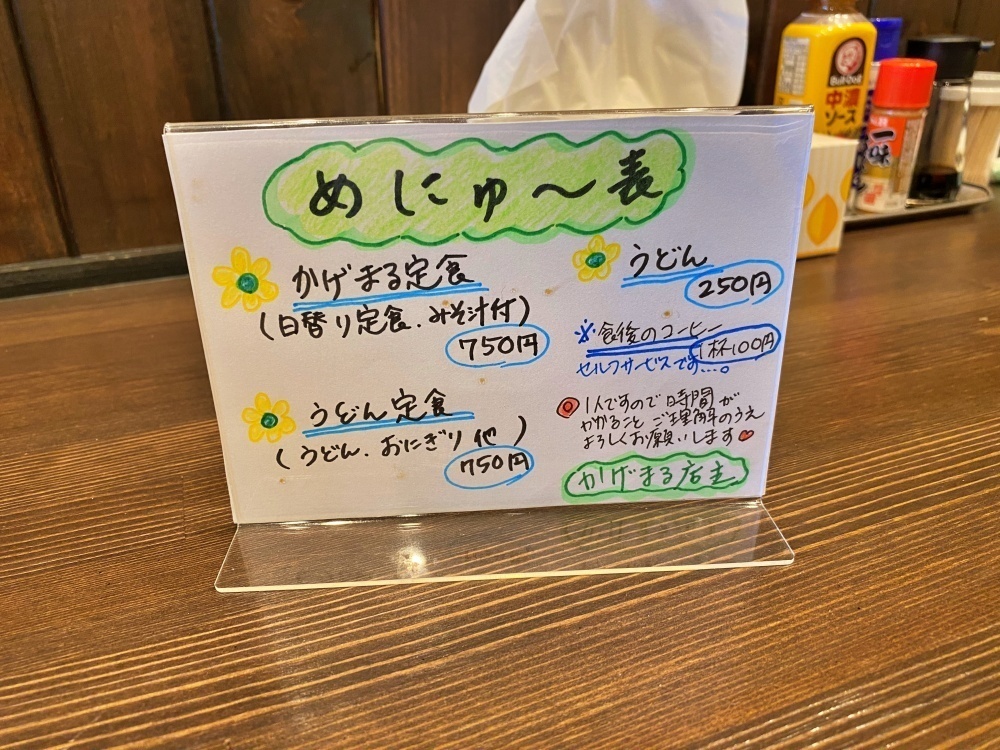 めにゅ～表
かげまる定食
(日替り定食.みそ汁付)
750円
うどん定食
(うどん.おにぎり他)
750円
うどん
250円
※食後のコーヒー
1杯100円
セルフサービスです...。
1人ですので時間が
かかること ご理解のうえ
よろしくお願いします
かげまる店主
Bull-Dog
中濃
ソース
一味